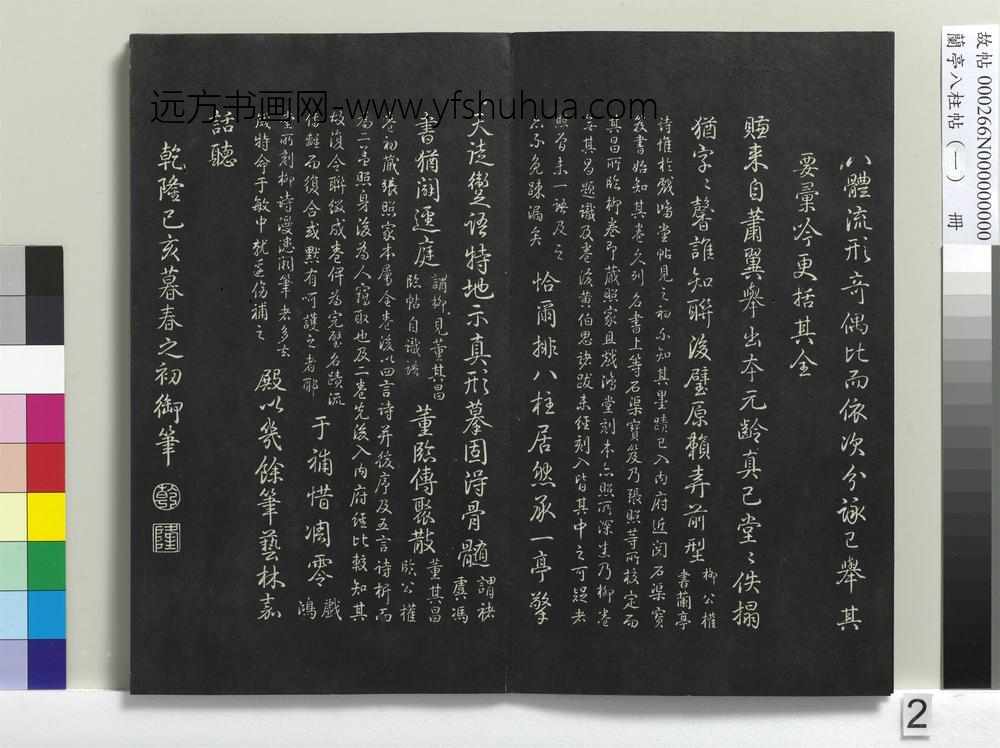 八體流形奇偶比而依次分詠已舉其
要彙吟更括其全
賺來自蕭翼舉出本元齡真已堂〻佚搨
猶字〻馨誰知聯後璧原賴弄前型 柳公權書蘭亭
詩惟於戲鴻堂帖見之初不知其墨蹟已入內府近閱石渠寶
笈書始知其卷久列名書上等石渠寶笈乃張照等所校定而
其昌所臨柳卷即藏照家且戲鴻堂刻本亦照所深悉乃柳卷
其昌題識及卷後黃伯思諸跋未經刻入皆其中之可疑者
照曾未一語及之
亦不免疎漏矣 恰爾排八柱居然承一亭擎
天徒衒語特地示真形摹固得骨髓 謂褚虞馮
書猶闢逕庭 謂柳見董其昌臨帖自識語 董臨傳聚散 董其昌臨公權
卷初藏張照家本屬全卷後以四言詩并後序及五言詩析而
為二是照身後為人竊取也及二卷先後入內府經比較知其
故復令聯綴成卷俾為完璧名蹟流
傳離而復合或默有呵護之者耶 于補惜凋零 戲鴻
堂所刻柳詩漫漶閣筆者多矣
幾特命于敏中就邊傷補之 殿以幾餘筆藝林嘉
話聽
乾隆己亥暮春之初御筆
乾
隆
远方书画网-www.yfshuhua.com
故帖 000266N000000000
蘭亭八柱帖（一） 冊
2